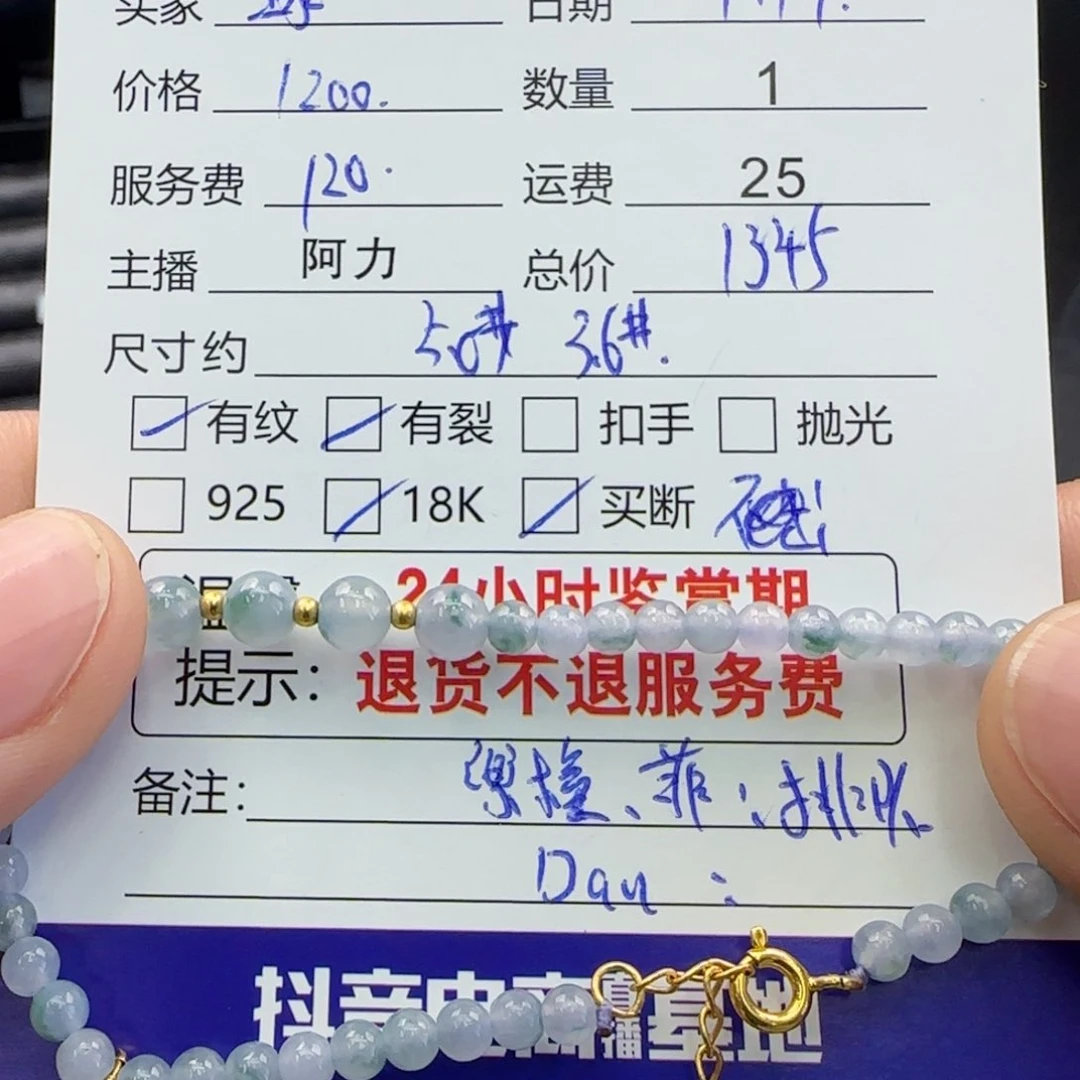 买家 日期
价格 1200. 数量 1
服务费 120. 运费 25
主播 阿力 总价 1345
尺寸约 5.0# 3.6#.
有纹 有裂 扣手 抛光
925 18K 买断
24小时鉴赏期
提示：退货不退服务费
备注：
Dan :
抖音电商直播基地